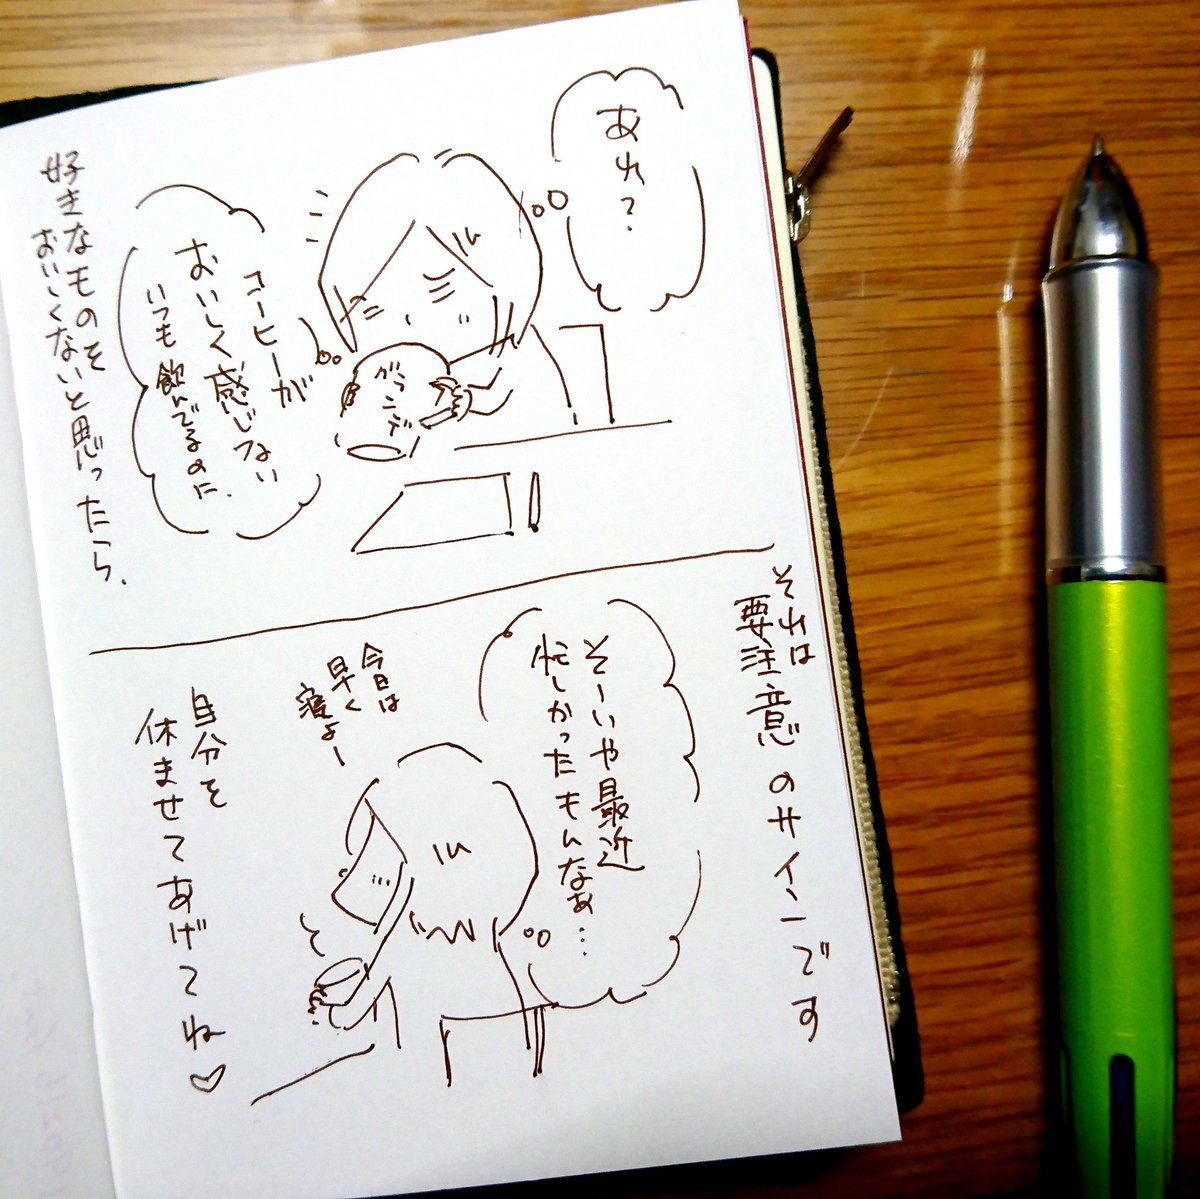 あれ?
コーヒーが
おいしく感じない
いつも飲んでるのに、
グランデ
好きなものを
おいしくないと思ったら、
それは
要注意のサインです
そーいや最近
忙しかったもんなぁ…
今日は
早く
寝よー
自分を
休ませてあげてね♡